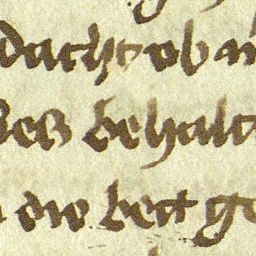 dacht ob
des behalt
die bett ge